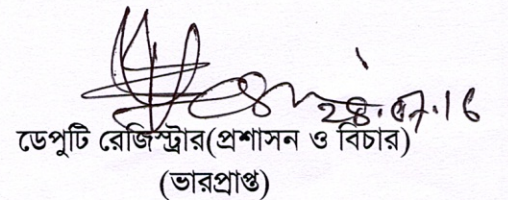 28.07.16
ডেপুটি রেজিস্ট্রার(প্রশাসন ও বিচার)
(ভারপ্রাপ্ত)